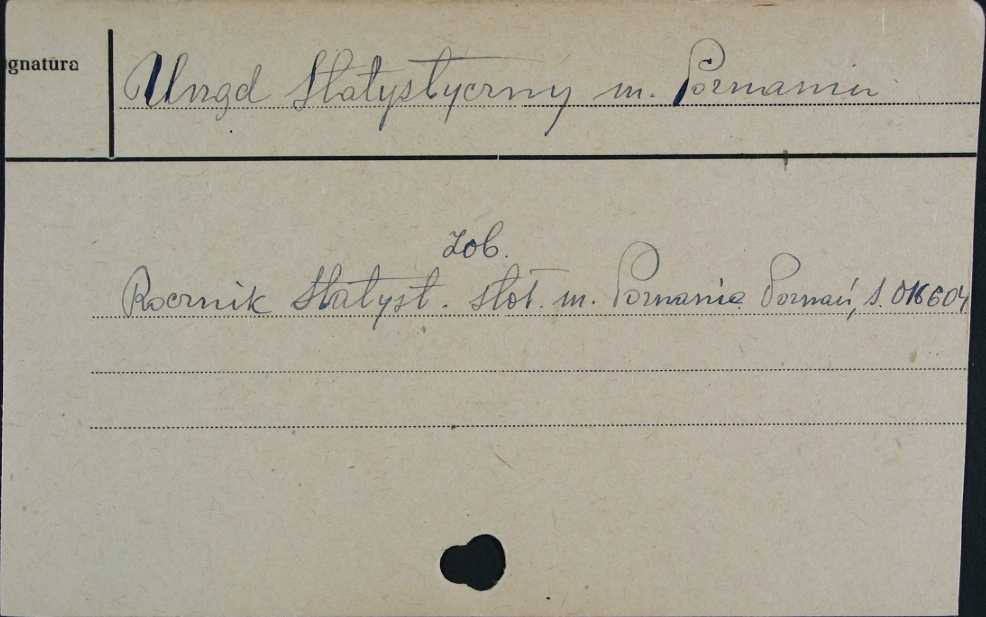 gnatura
Urząd Statystyczny m. Poznania
Zob.
Rocznik Statyst. stoł. m. Poznania Poznań, S. 016604